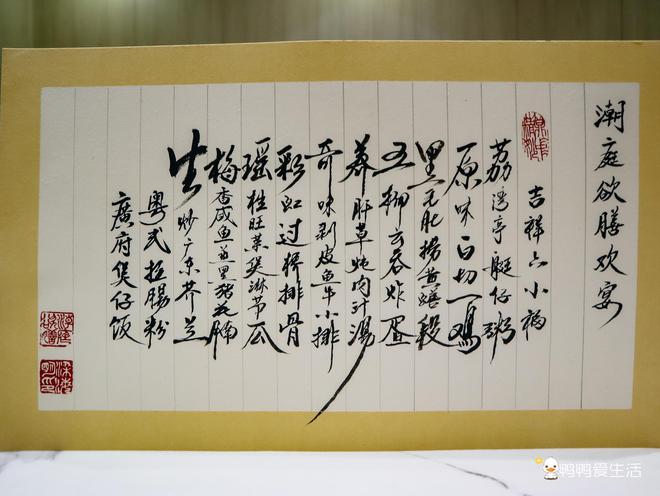 潮庭欲膳欢宴
吉祥六小福
荔湾亭艇仔粥
原味白切一鸡
黑毛肚捞黄鳝段
五柳云吞炸蛋
养肝草炖肉汁汤
奇味剥皮鱼牛小排
彩虹过桥排骨
瑶柱旺菜煲淋节瓜
梅香咸鱼蒸黑猪五腩
生炒广东芥兰
粤式拉腸粉
廣府煲仔饭
鸭鸭爱生活